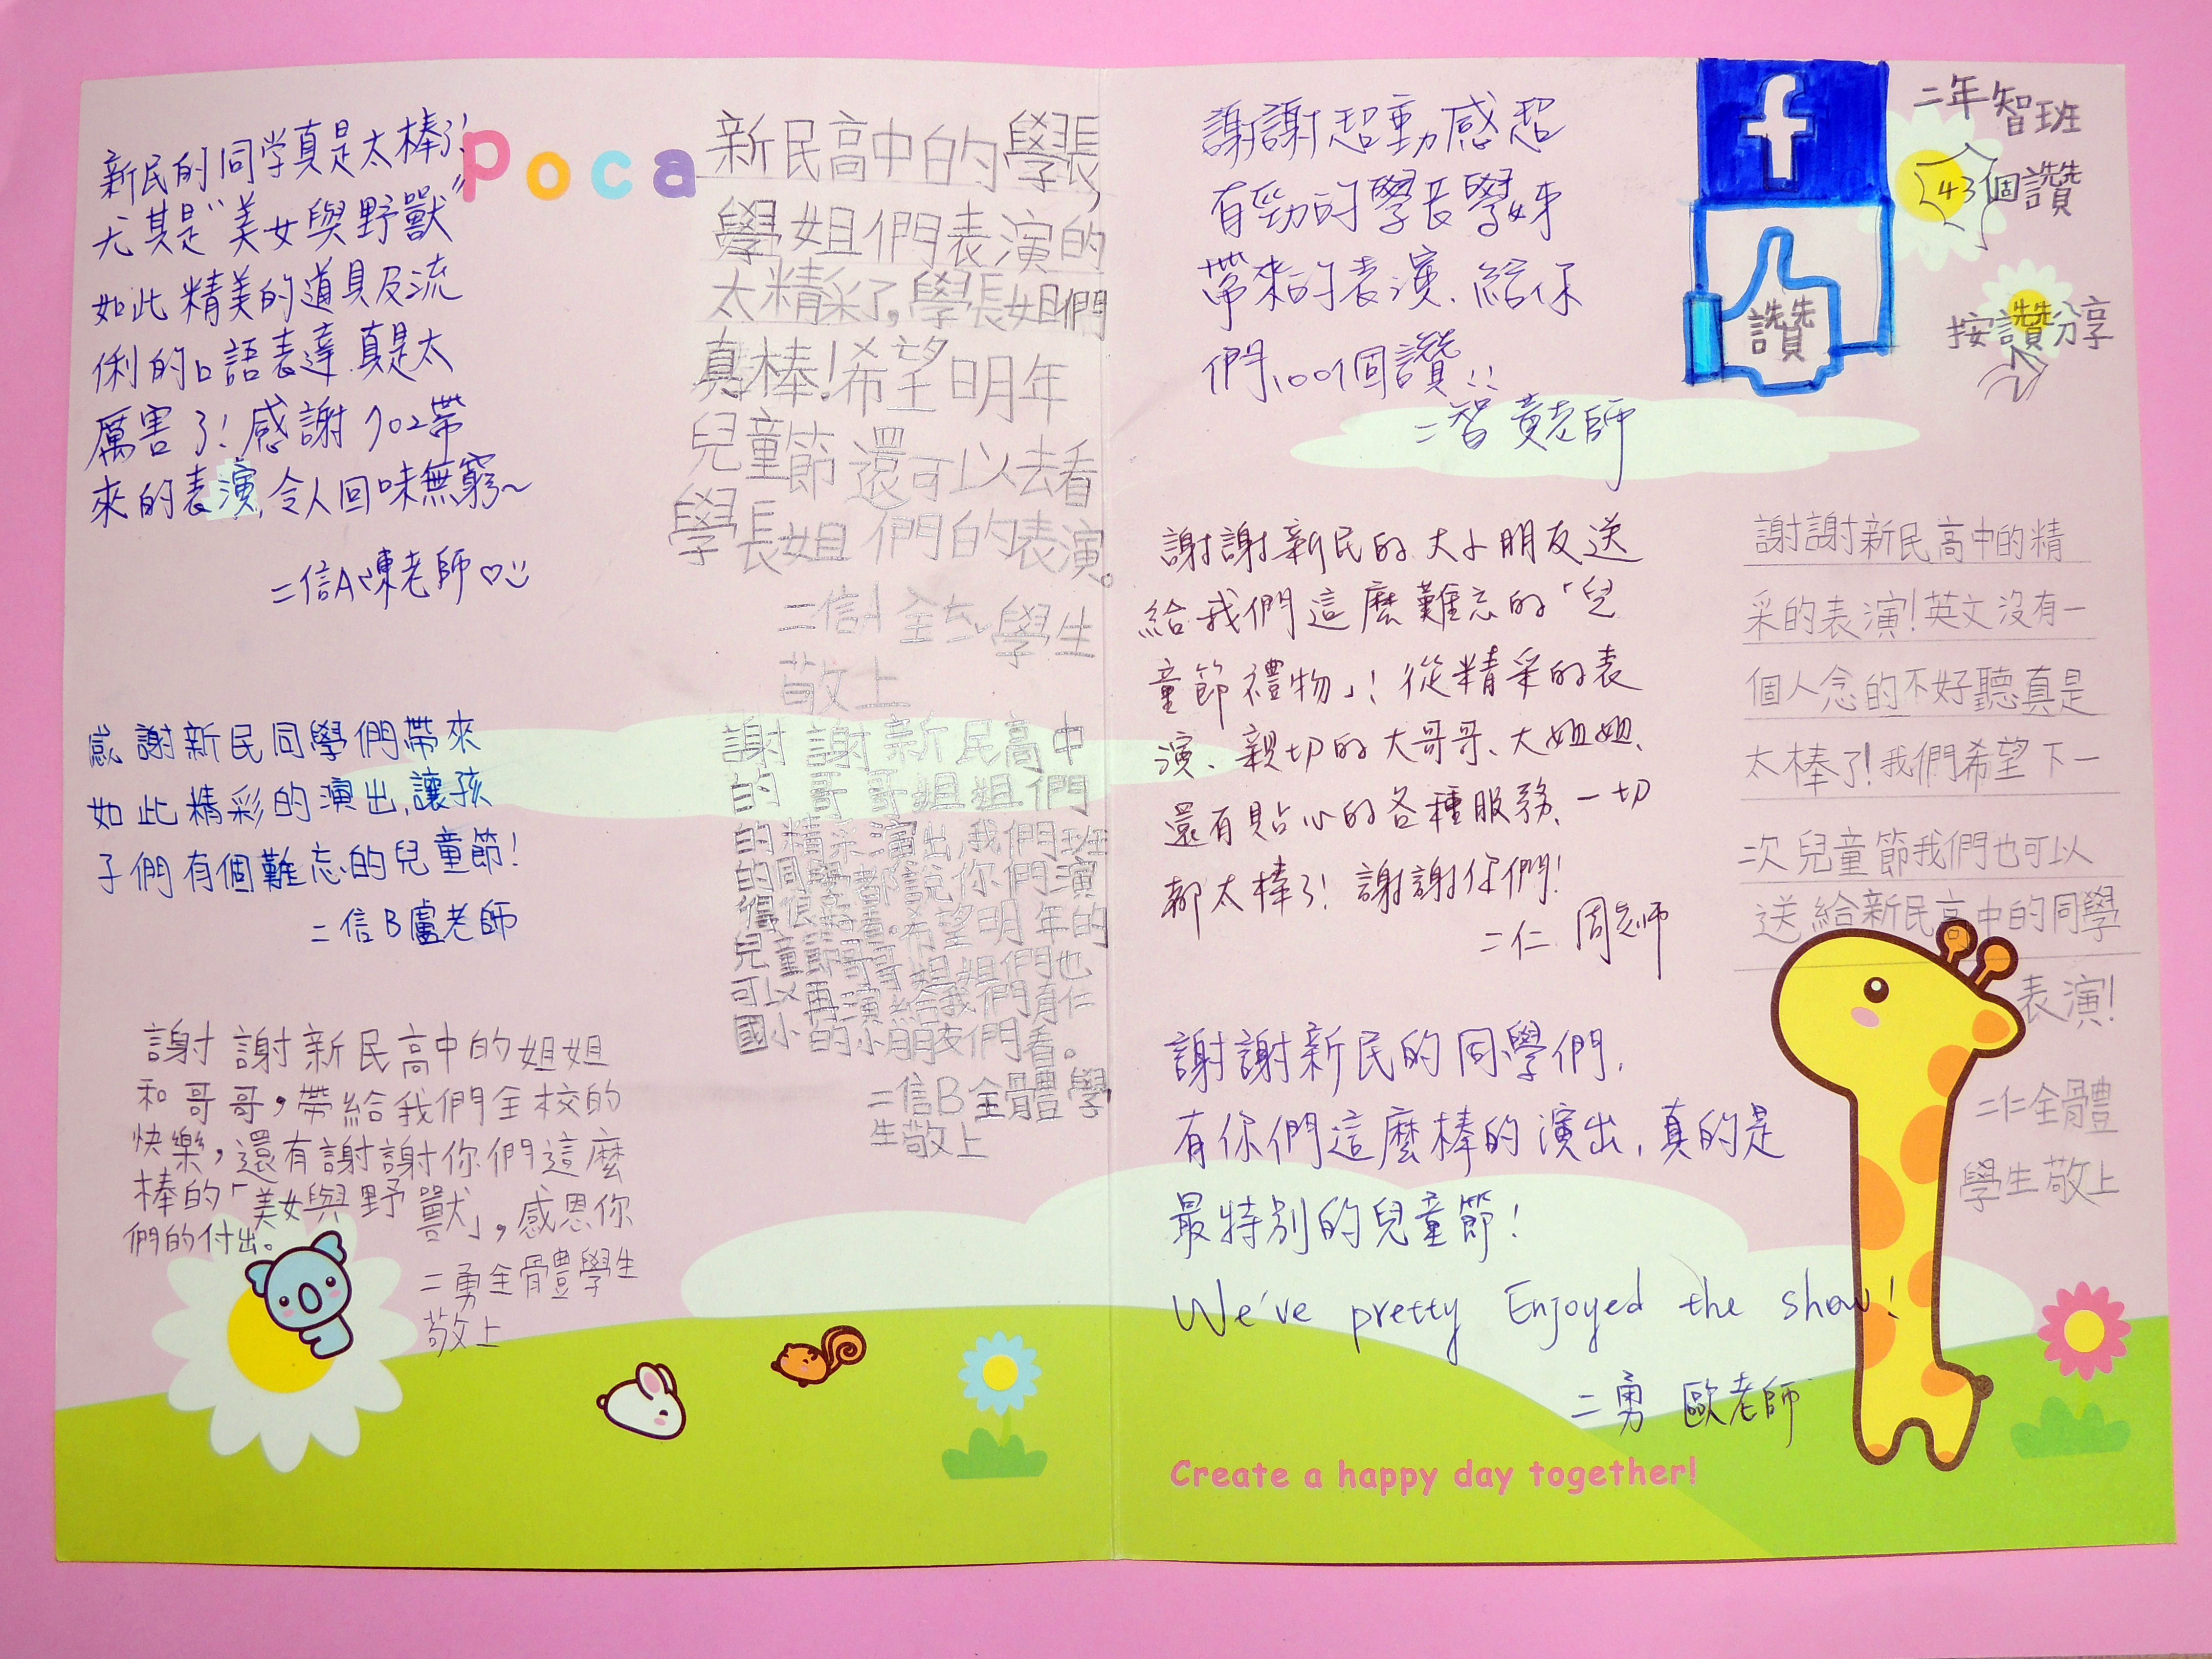 poca
新民的同学真是太棒了!
尤其是"美女與野獸"
如此精美的道具及流
俐的口語表達.真是太
厲害了!感謝702帶
來的表演,令人回味無窮~
二信A陳老師♡
感謝新民同學們帶來
如此精彩的演出,讓孩
子們有個難忘的兒童節!
二信B盧老師
謝謝新民高中的姐姐
和哥哥,帶給我們全校的
快樂,還有謝謝你們這麼
棒的「美女與野獸」,感恩你
們的付出。
二勇全體學生
敬上
新民高中的學長,
學姐們表演的
太精采了,學長姐們
真棒!希望明年
兒童節還可以去看
學長姐們的表演。
二信 學生
敬上
謝謝新民高中
的哥哥姐姐們
的精采演出,我們班
的同學都說你們演
得很好看。希望明年的
兒童節哥哥姐姐們也
可以再演給我們育仁
國小的小朋友們看。
二信B全體學
生敬上
謝謝超動感超
有勁的學長學姊
帶來的表演.給你
們100個讚!!
二智 黃老師
f
讚
二年智班
43個讚
按讚分享
謝謝新民的大小朋友送
給我們這麼難忘的「兒
童節禮物」!從精采的表
演、親切的大哥哥、大姐姐、
還有貼心的各種服務、一切
都太棒了!謝謝你們!
二仁 周老師
謝謝新民高中的精
采的表演!英文沒有一
個人念的不好聽真是
太棒了!我們希望下一
次兒童節我們也可以
送給新民高中的同學
表演!
二仁全體
學生敬上
謝謝新民的同學們,
有你們這麼棒的演出,真的是
最特別的兒童節!
We've pretty Enjoyed the show!
二勇 歐老師
Create a happy day together!